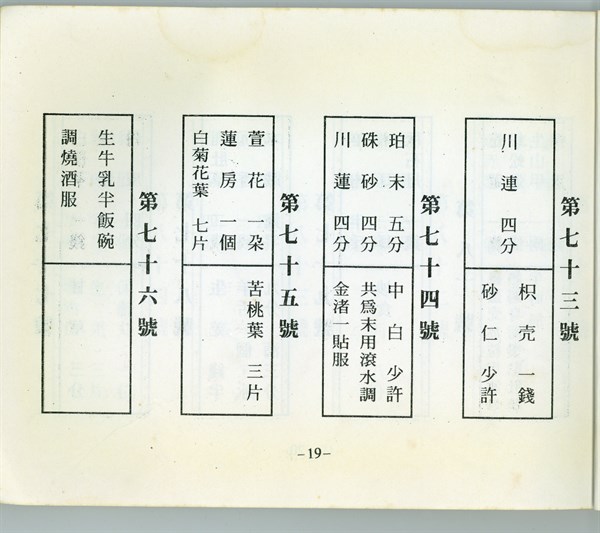 第七十三號
川連四分
枳壳一錢
砂仁少許
第七十四號
珀末五分
硃砂四分
川蓮四分
中白少許
共爲末用滾水調
金渚一貼服
第七十五號
萱花一朶
蓮房一個
白菊花葉七片
苦桃葉三片
第七十六號
生牛乳半飯碗
調燒酒服
-19-